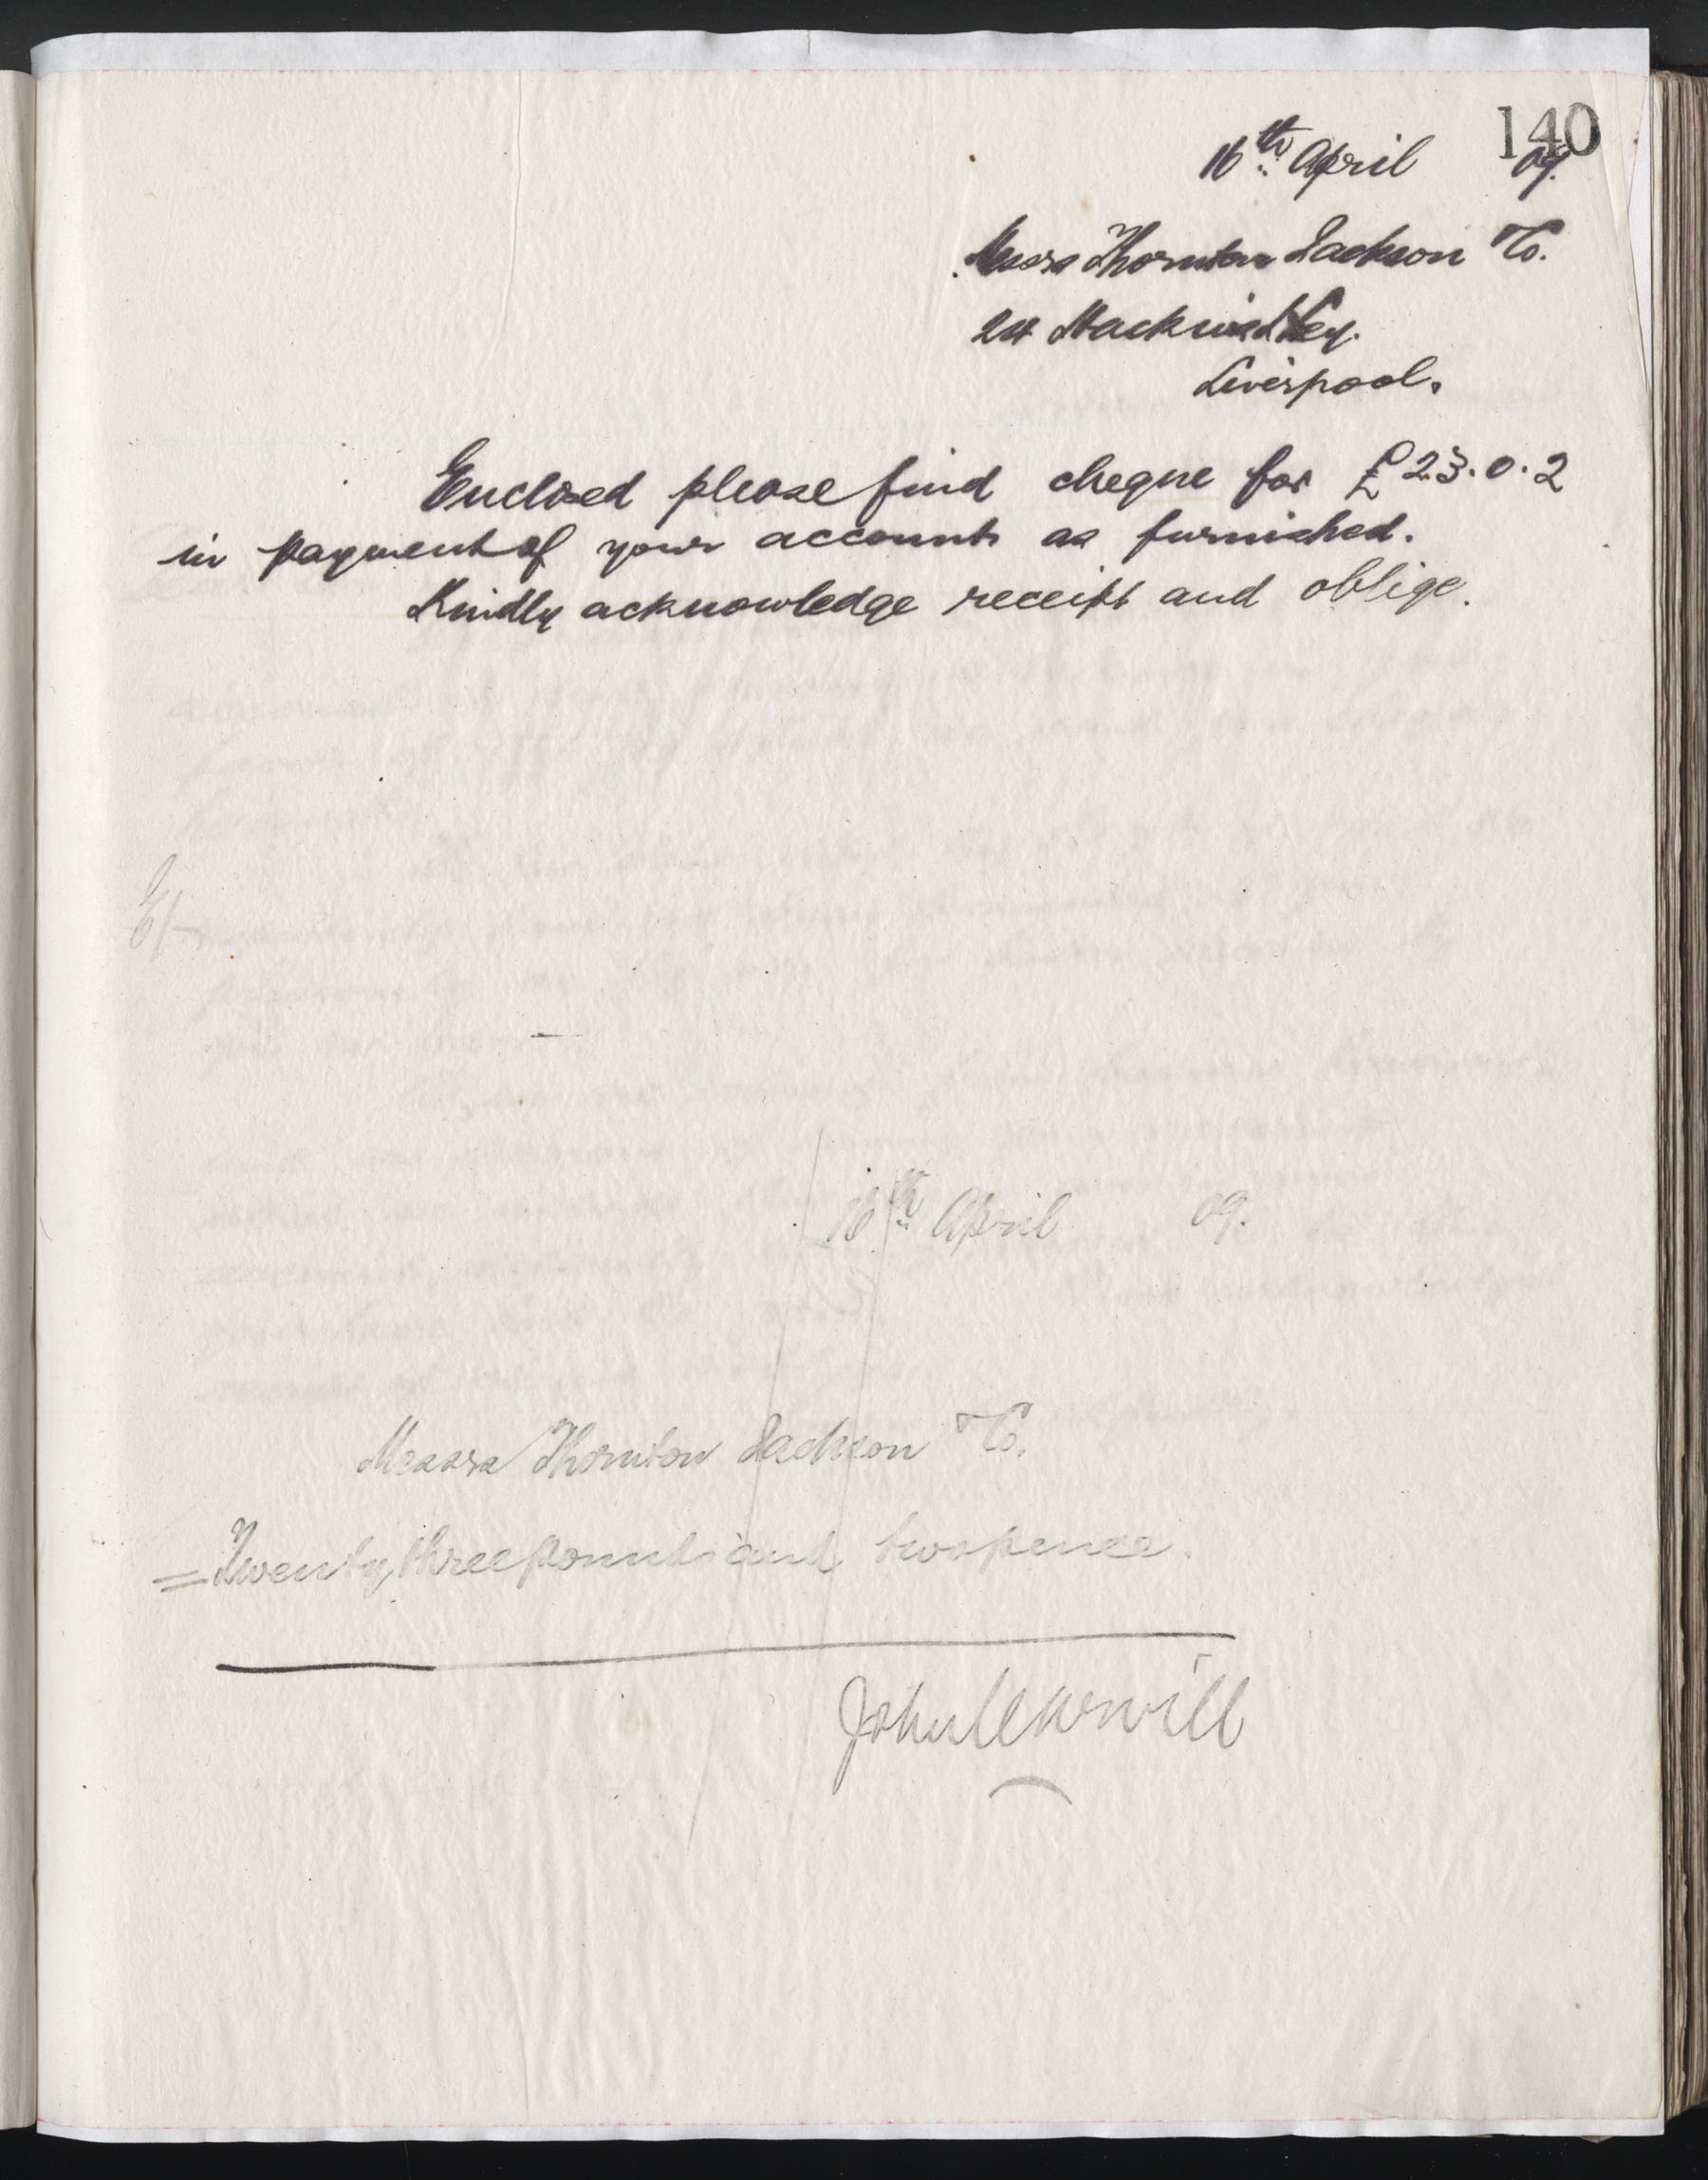 140
16th April 09.
Messrs Thornton Jackson & Co.
24 Hackins Hey.
Liverpool.
Enclosed please find cheque for £23.0.2
in payment of your accounts as furnished.
Kindly acknowledge receipt and oblige.
16th April 09.
Messrs Thornton Jackson & Co.
Twenty three pounds and twopence.